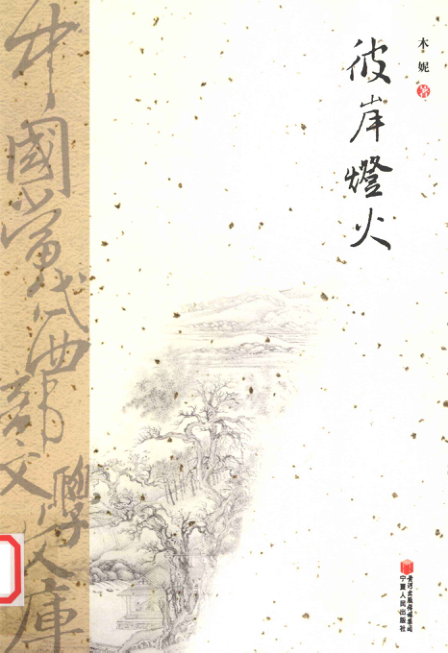 木妮 著
彼岸燈火
中國當代西部文學文庫
黄河出版传媒集团
宁夏人民出版社